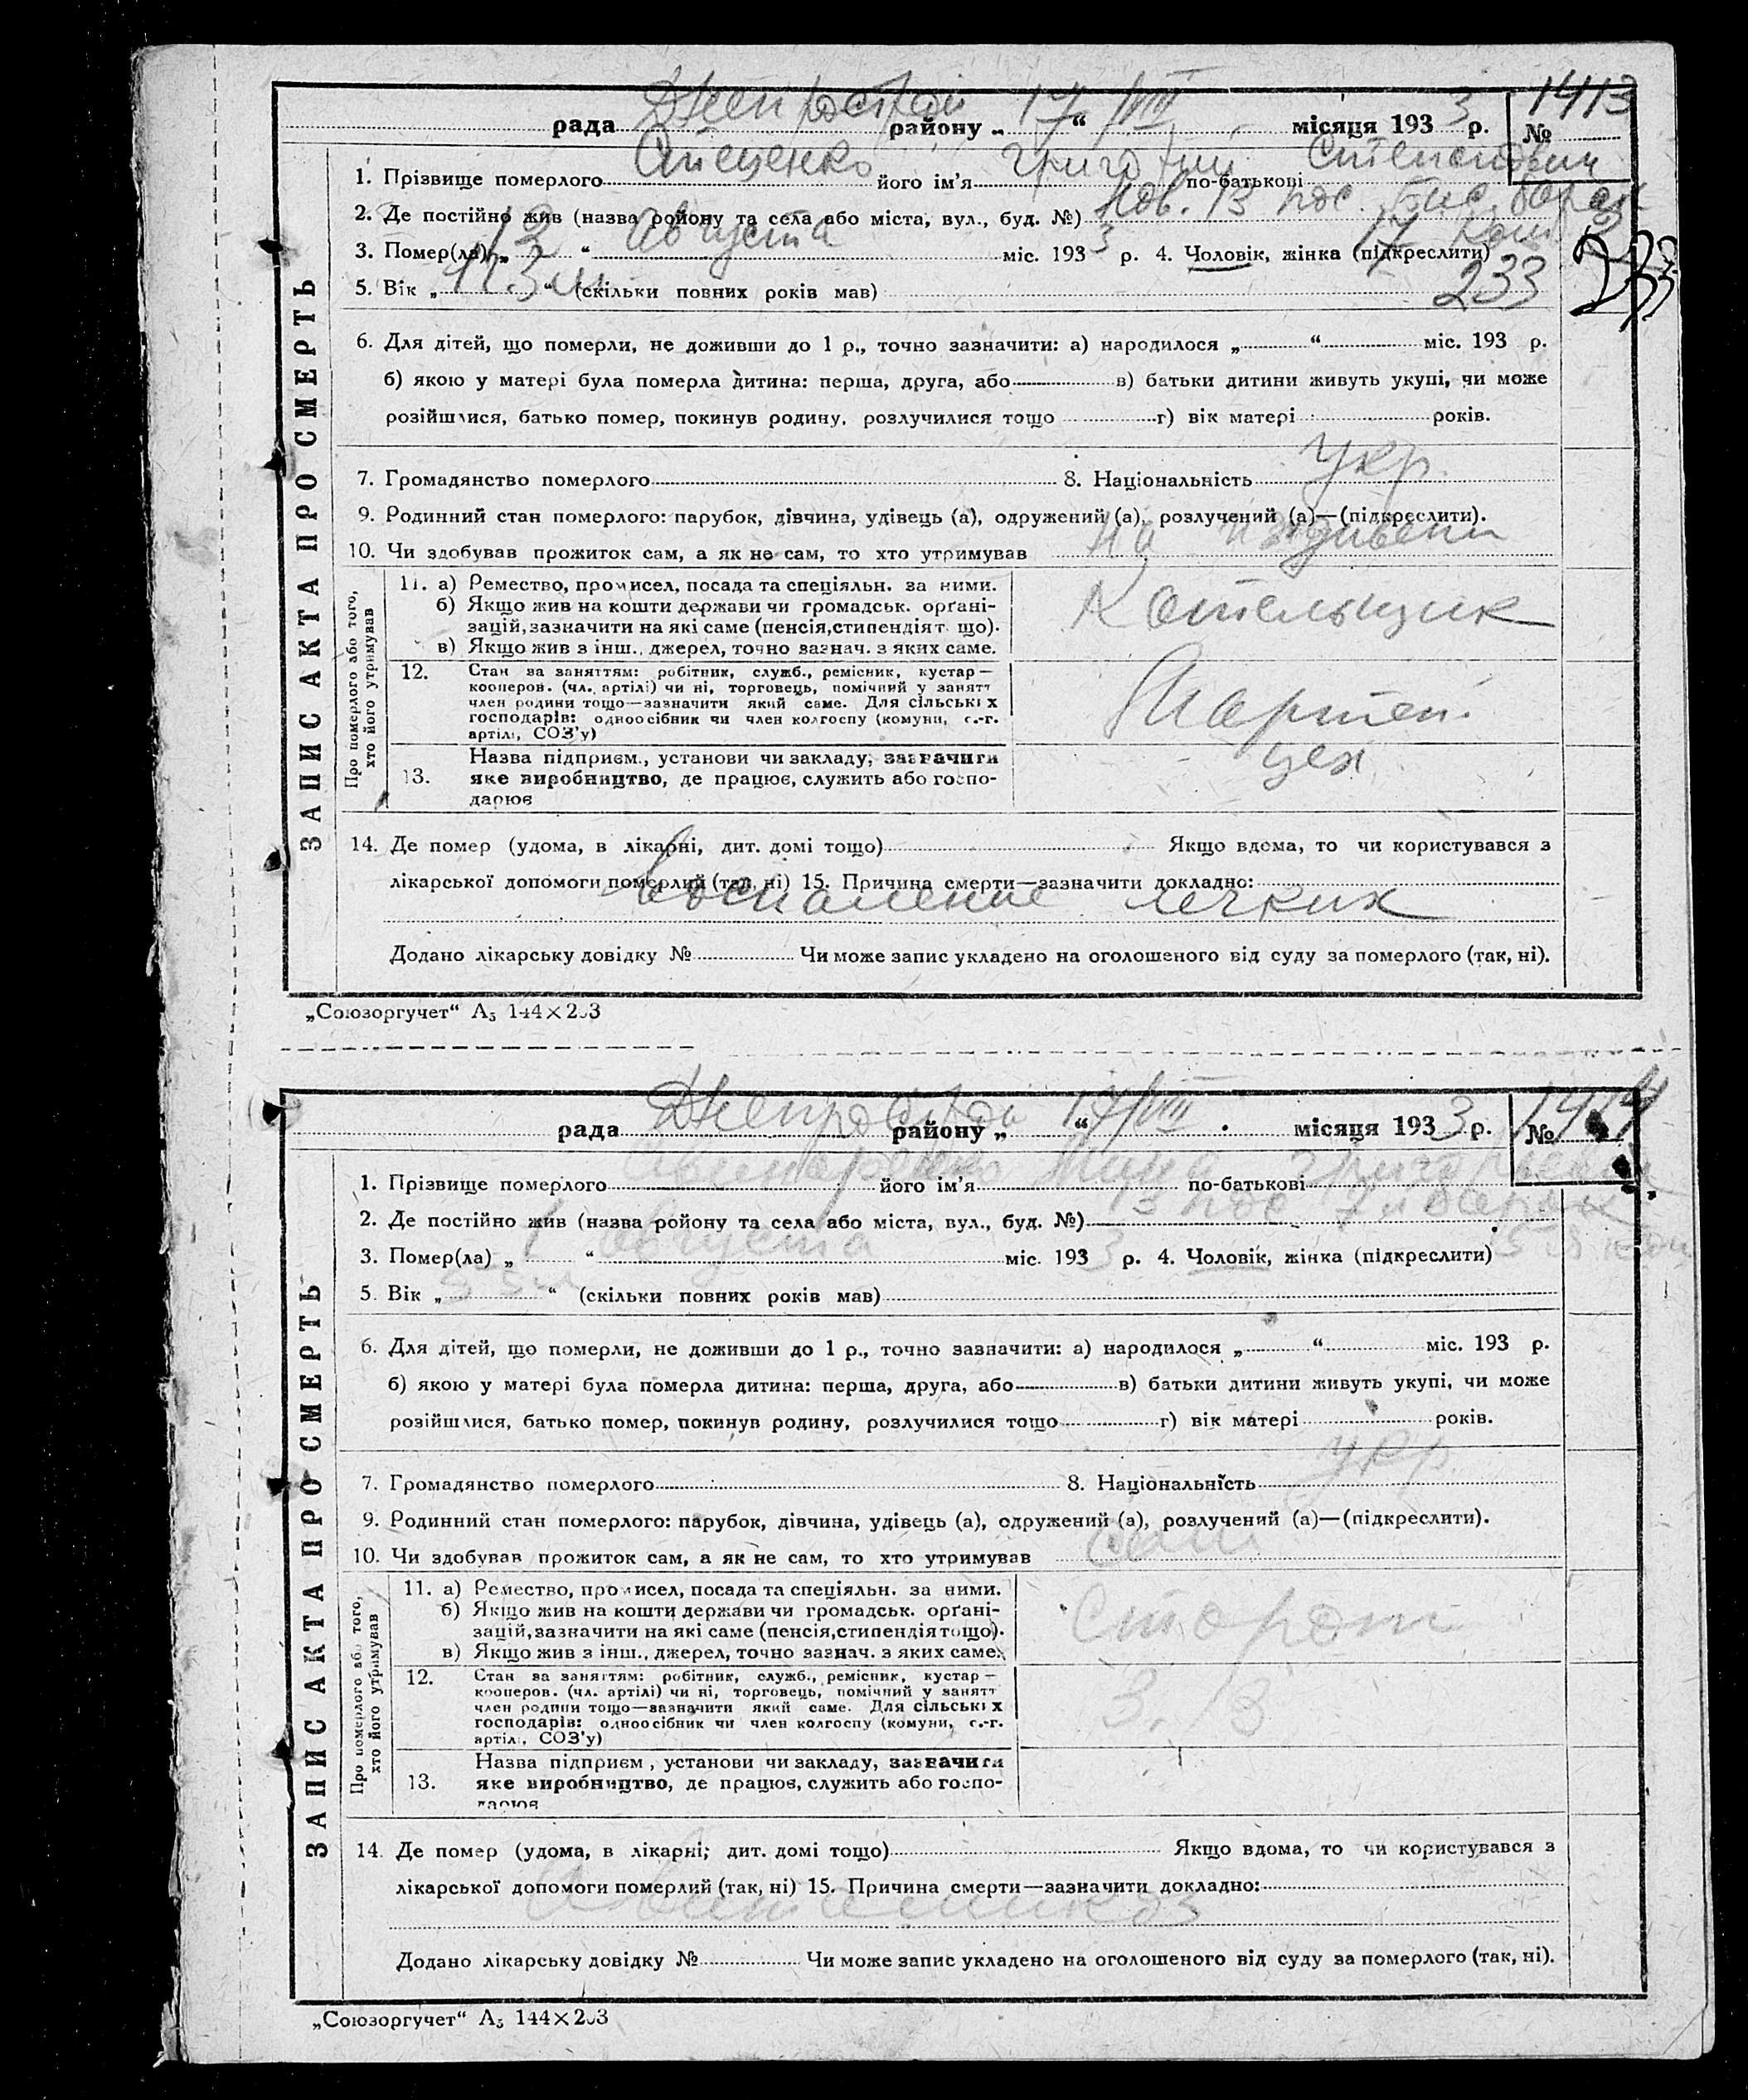 Днепрострой 17/VIII 3 1413
рада району „ “ місяця 193 р. №
1. Прізвище померлого Стеценко його ім'я Григорий по-батькові Степанович
2. Де постійно жив (назва ройону та села або міста, вул., буд. №) 13 пос.
3. Помер(ла) „ 13 “ Августа міс. 193 3 р. 4. Чоловік, жінка (підкреслити) 17
5. Вік „ “ (скільки повних років мав) 233 233
6. Для дітей, що померли, не доживши до 1 р., точно зазначити: а) народилося „ “ міс. 193 р.
б) якою у матері була померла дитина: перша, друга, або в) батьки дитини живуть укупі, чи може
розійшлися, батько помер, покинув родину, розлучилися тощо г) вік матері років.
7. Громадянство померлого 8. Національність укр.
9. Родинний стан померлого: парубок, дівчина, удівець (а), одружений (а), розлучений (а)—(підкреслити).
10. Чи здобував прожиток сам, а як не сам, то хто утримував на иждивени
11. а) Ремество, промисел, посада та спеціяльн. за ними.
б) Якщо жив на кошти держави чи громадськ. орґані-
зацій, зазначити на які саме (пенсія, стипендія т що).
в) Якщо жив з інш., джерел, точно зазнач. з яких саме.
Котельщик
12. Стан за заняттям: робітник, служб., ремісник, кустар—
кооперов. (чл. артілі) чи ні, торговець, помічний у занятт
член родини тощо—зазначити який саме. Для сільських
господарів: одноосібник чи член колгоспу (комуни, с.-г.
артілі, СОЗ'у)
Мартен.
цех
13. Назва підприєм., установи чи закладу, зазначити
яке виробництво, де працює, служить або госпо-
дарює
Про померлого або того,
хто його утримував
ЗАПИС АКТА ПРО СМЕРТЬ
14. Де помер (удома, в лікарні, дит. домі тощо) Якщо вдома, то чи користувався з
лікарської допомоги померлий (так, ні) 15. Причина смерти—зазначити докладно:
Воспаление легких
Додано лікарську довідку № Чи може запис укладено на оголошеного від суду за померлого (так, ні).
„Союзоргучет“ А₅ 144×203
Днепрострой 17/VIII 3 1414
рада району „ “ місяця 193 р. №
1. Прізвище померлого його ім'я по-батькові Григорьевич
2. Де постійно жив (назва ройону та села або міста, вул., буд. №) 13 пос
3. Помер(ла) „ 1 “ Августа міс. 193 3 р. 4. Чоловік, жінка (підкреслити)
5. Вік „ “ (скільки повних років мав)
6. Для дітей, що померли, не доживши до 1 р., точно зазначити: а) народилося „ “ міс. 193 р.
б) якою у матері була померла дитина: перша, друга, або в) батьки дитини живуть укупі, чи може
розійшлися, батько помер, покинув родину, розлучилися тощо г) вік матері років.
7. Громадянство померлого 8. Національність укр.
9. Родинний стан померлого: парубок, дівчина, удівець (а), одружений (а), розлучений (а)—(підкреслити).
10. Чи здобував прожиток сам, а як не сам, то хто утримував сам
11. а) Ремество, промисел, посада та спеціяльн. за ними.
б) Якщо жив на кошти держави чи громадськ. орґані-
зацій, зазначити на які саме (пенсія, стипендія тощо).
в) Якщо жив з інш., джерел, точно зазнач. з яких саме.
Сторож
12. Стан за заняттям: робітник, служб., ремісник, кустар—
кооперов. (чл. артілі) чи ні, торговець, помічний у занятт
член родини тощо—зазначити який саме. Для сільських
господарів: одноосібник чи член колгоспу (комуни, с.-г.
артілі, СОЗ'у)
13. Назва підприєм., установи чи закладу, зазначити
яке виробництво, де працює, служить або госпо-
дарює
Про померлого або того,
хто його утримував
ЗАПИС АКТА ПРО СМЕРТЬ
14. Де помер (удома, в лікарні; дит. домі тощо) Якщо вдома, то чи користувався з
лікарської допомоги померлий (так, ні) 15. Причина смерти—зазначити докладно:
Авитаминоз
Додано лікарську довідку № Чи може запис укладено на оголошеного від суду за померлого (так, ні).
„Союзоргучет“ А₅ 144×203